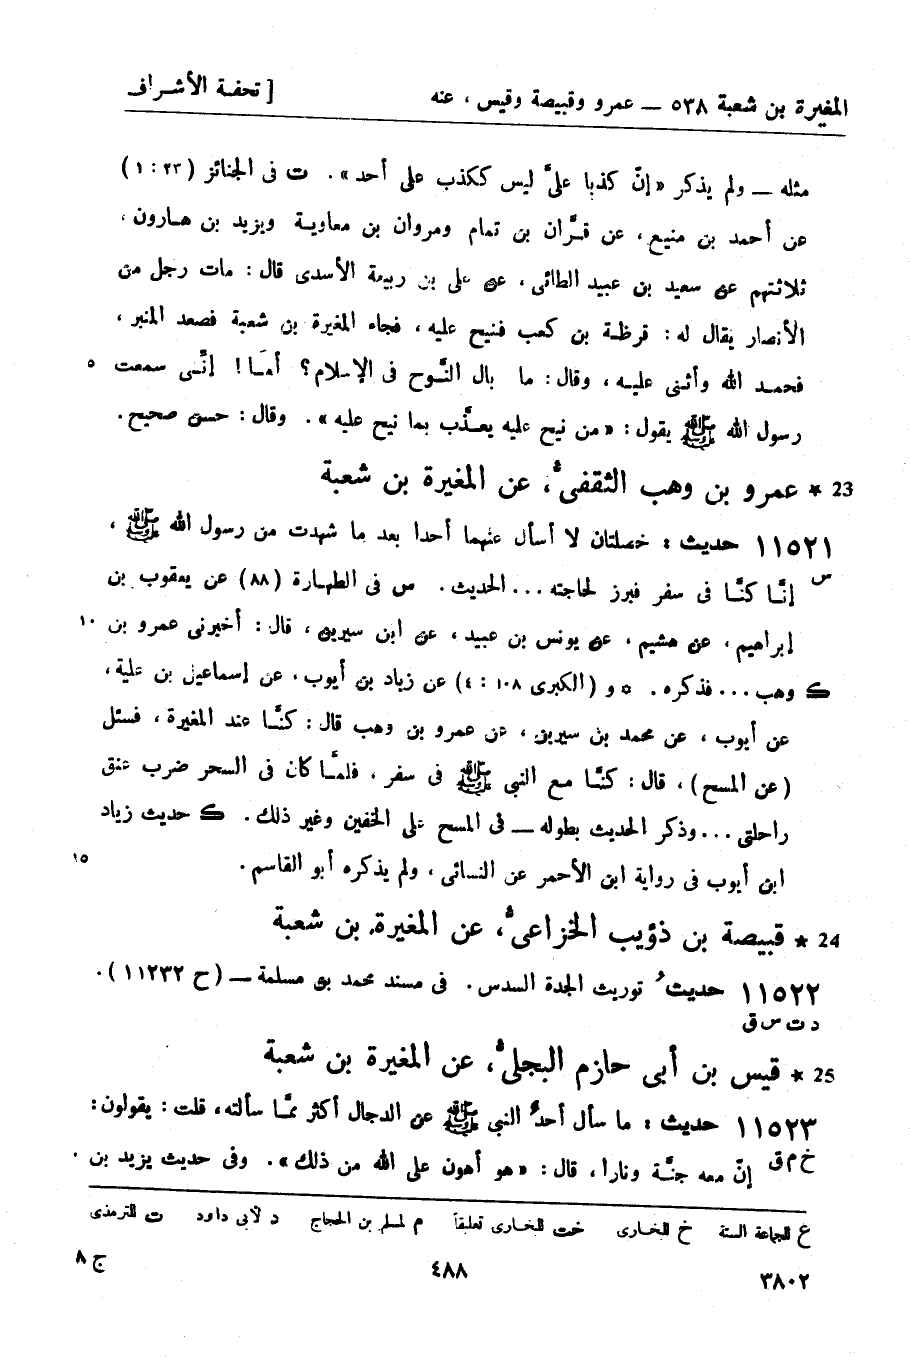 المغيرة بن شعبة ٥٣٨ ــ عمرو وقبيصة وقيس ، عنه [ تحفة الأشراف
مثله ــ ولم يذكر « إنّ كذبا علىَّ ليس ككذب على أحد ». ت فى الجنائز (٢٣ : ١)
عن أحمد بن منيع ، عن قرَّان بن تمام ومروان بن معاوية ويزيد بن هارون ،
ثلاثتهم عن سعيد بن عبيد الطائى ، عن على بن ربيعة الأسدى قال : مات رجل من
الأنصار يقال له : قرظة بن كعب فنيح عليه ، فجاء المغيرة بن شعبة فصعد المنبر ،
فحمد الله وأثنى عليه ، وقال : ما بال النَّوح فى الإسلام ؟ أمَا ! إنَّى سمعت ٥
رسول الله ﷺ يقول : « من نيح عليه يعذَّب بما نيح عليه » . وقال : حسن صحيح .
23 * عمرو بن وهب الثقفىُّ ، عن المغيرة بن شعبة
١١٥٢١ حديث : خصلتان لا أسأل عنهما أحدا بعد ما شهدت من رسول الله ﷺ ،
س إنَّا كنَّا فى سفر فبرز لحاجته ... الحديث . س فى الطهارة (٨٨) عن يعقوب بن
إبراهيم ، عن هشيم ، عن يونس بن عبيد ، عن ابن سيرين ، قال : أخبرنى عمرو بن ١٠
ك وهب ... فذكره . * و (الكبرى ١٠٨ : ٤) عن زياد بن أيوب ، عن إسماعيل بن علية ،
عن أيوب ، عن محمد بن سيرين ، عن عمرو بن وهب قال : كنَّا عند المغيرة ، فسئل
(عن المسح) ، قال : كنَّا مع النبي ﷺ فى سفر ، فلمَّا كان فى السحر ضرب عنق
راحلتى ... وذكر الحديث بطوله ــ فى المسح على الخفين وغير ذلك . ك حديث زياد
ابن أيوب فى رواية ابن الأحمر عن النسائى ، ولم يذكره أبو القاسم . ١٥
24 * قبيصة بن ذؤيب الخزاعىُّ ، عن المغيرة بن شعبة
١١٥٢٢ حديثُ توريث الجدة السدس . فى مسند محمد بن مسلمة ــ (ح ١١٢٣٢) .
د ت س ق
25 * قيس بن أبى حازم البجلىُّ ، عن المغيرة بن شعبة
١١٥٢٣ حديث : ما سأل أحدٌ النبي ﷺ عن الدجال أكثر ممَّا سألته ، قلت : يقولون :
خ م ق إنّ معه جنَّة ونارا ، قال : « هو أهون على الله من ذلك » . وفى حديث يزيد بن
ع للجماعة الستة خ للبخارى خت للبخارى تعليقاً م لمسلم بن الحجاج د لأبى داود ت للترمذى
٣٨٠٢ ٤٨٨ ج ٨